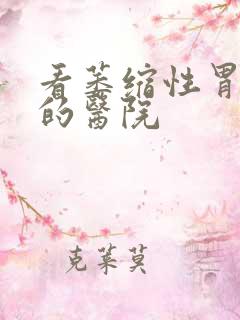 看萎缩性胃
的醫院
克莱莫